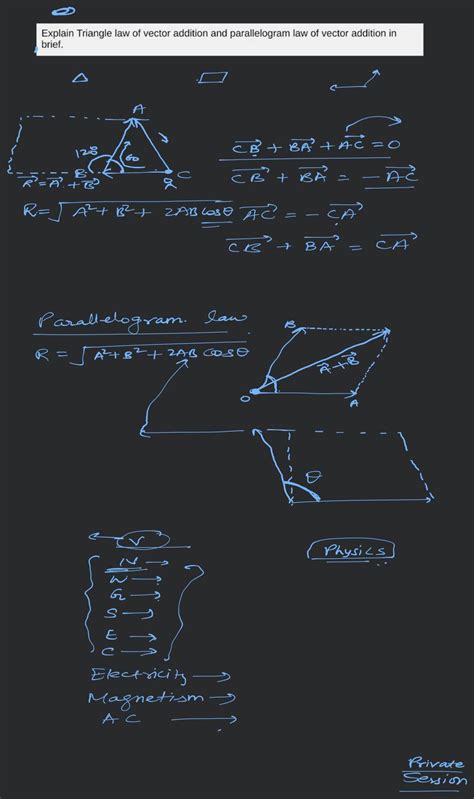 Explain Triangle law of vector addition and parallelogram law of vector addition in
brief.
A
120
60
B
C
Q
R⃗ = A⃗ + B⃗
R = √A² + B² + 2AB cos θ
CB⃗ + BA⃗ + AC⃗ = 0
CB⃗ + BA⃗ = - AC⃗
AC⃗ = - CA⃗
CB⃗ + BA⃗ = CA⃗
Parallelogram law
R = √A² + B² + 2AB cos θ
B
A⃗ + B⃗
O
A
θ
V
Physics
IV →
W →
G →
S →
E →
C →
Electricity →
Magnetism →
AC →
Private
Session